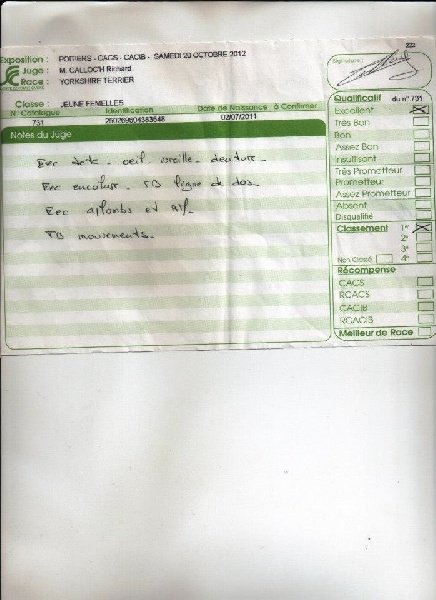 222
Exposition : POITIERS - CACS - CACIB - SAMEDI 20 OCTOBRE 2012
Juge : M. CALLOC'H Richard
Race : YORKSHIRE TERRIER
Signature :
Classe : JEUNE FEMELLES
N° Catalogue Identification Date de Naissance à Confirmer
731 250269604383648 02/07/2011
Notes du Juge
Exc tête - oeil oreille - denture -
Exc encolure - TB ligne de dos -
Exc aplombs et
TB mouvements -
Qualificatif du n° 731
Excellent
Très Bon
Bon
Assez Bon
Insuffisant
Très Prometteur
Prometteur
Assez Prometteur
Absent
Disqualifié
Classement 1°
2°
3°
Non Classé 4°
Récompense
CACS
RCACS
CACIB
RCACIB
Meilleur de Race